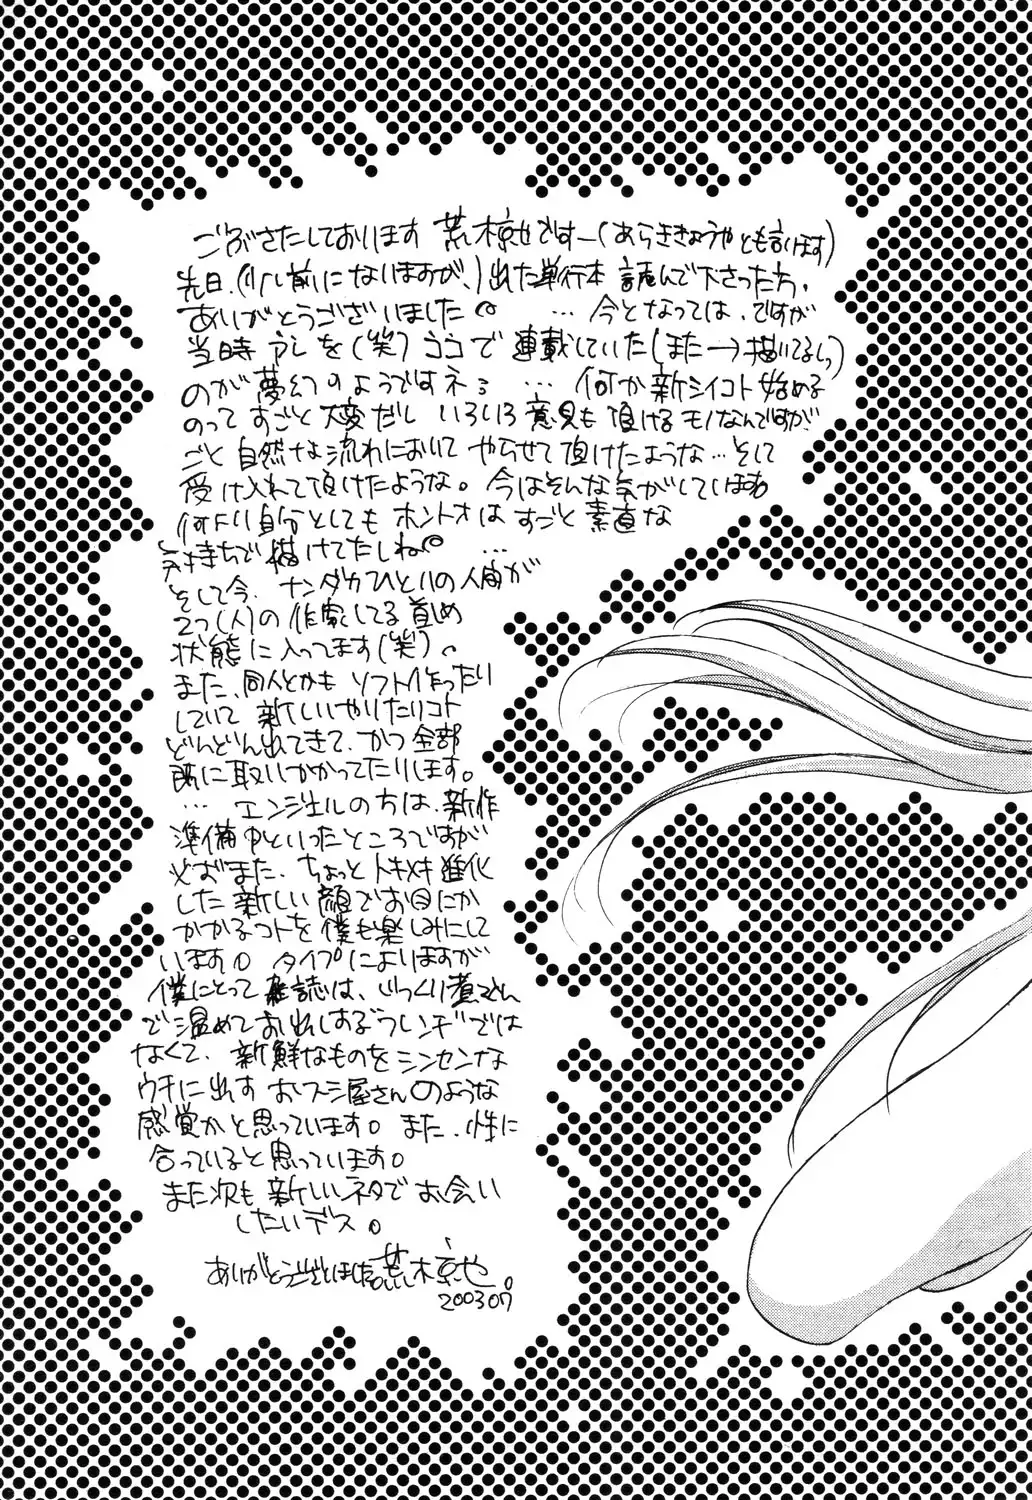 ごぶさたしております 荒木京也ですー(あらききょうやとも言います)
先日、(少し前になりますが、)出た単行本 読んで下さった方、
ありがとうございました。 …今となっては、ですが
当時 アレを(笑)ココで 連載していた(また→描いてるし)
のが夢幻のようですネ… …何か新シイコト始める
のってすごと大変だし いろいろ意見も頂けるモノなんですが
ごと自然な流れにおいて やらせて頂けたような…そして
受け入れて頂けたような。今はそんな気がしていまね
何より自分としても ホントオは すごと 素直な
気持ちで描けてたしね。 …
そして今、ナンダカひとりの人間が
2つ(人)の作家してる為め
状態に入ってます(笑)。
また、同人とかも ソフト作ったり
していて 新しいやりたいコト
どんどん出てきて、かつ全部
同に取りかかってたりします。
… エンジェルの方は、新作
準備中といったところですが
なおまた、ちょっとトキメキ進化
した新しい顔でお目にか
かかるコトを僕も楽しみにして
います。タイプによりますが
僕にとって雑誌は、じっくり煮こん
で温めてお出しする では
なくて、新鮮なものをシンセンな
ウチに出す おスシ屋さんのような
感覚かと思っています。また、性に
合っていると思っています。
また次も 新しいネタで お会い
したいデス。
ありがとうございました 荒木京也。
200307